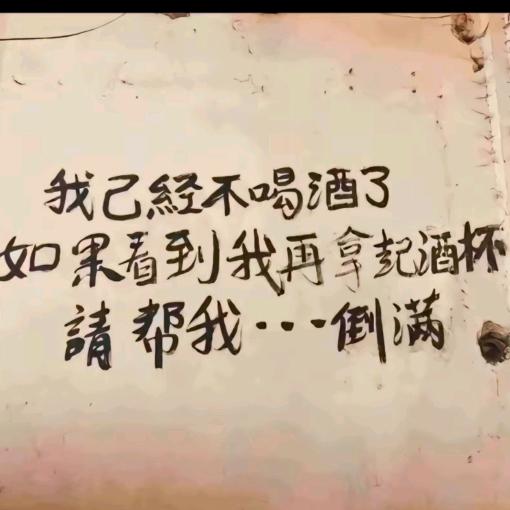 我己経不喝酒了
如果看到我再拿起酒杯
請帮我…倒滿